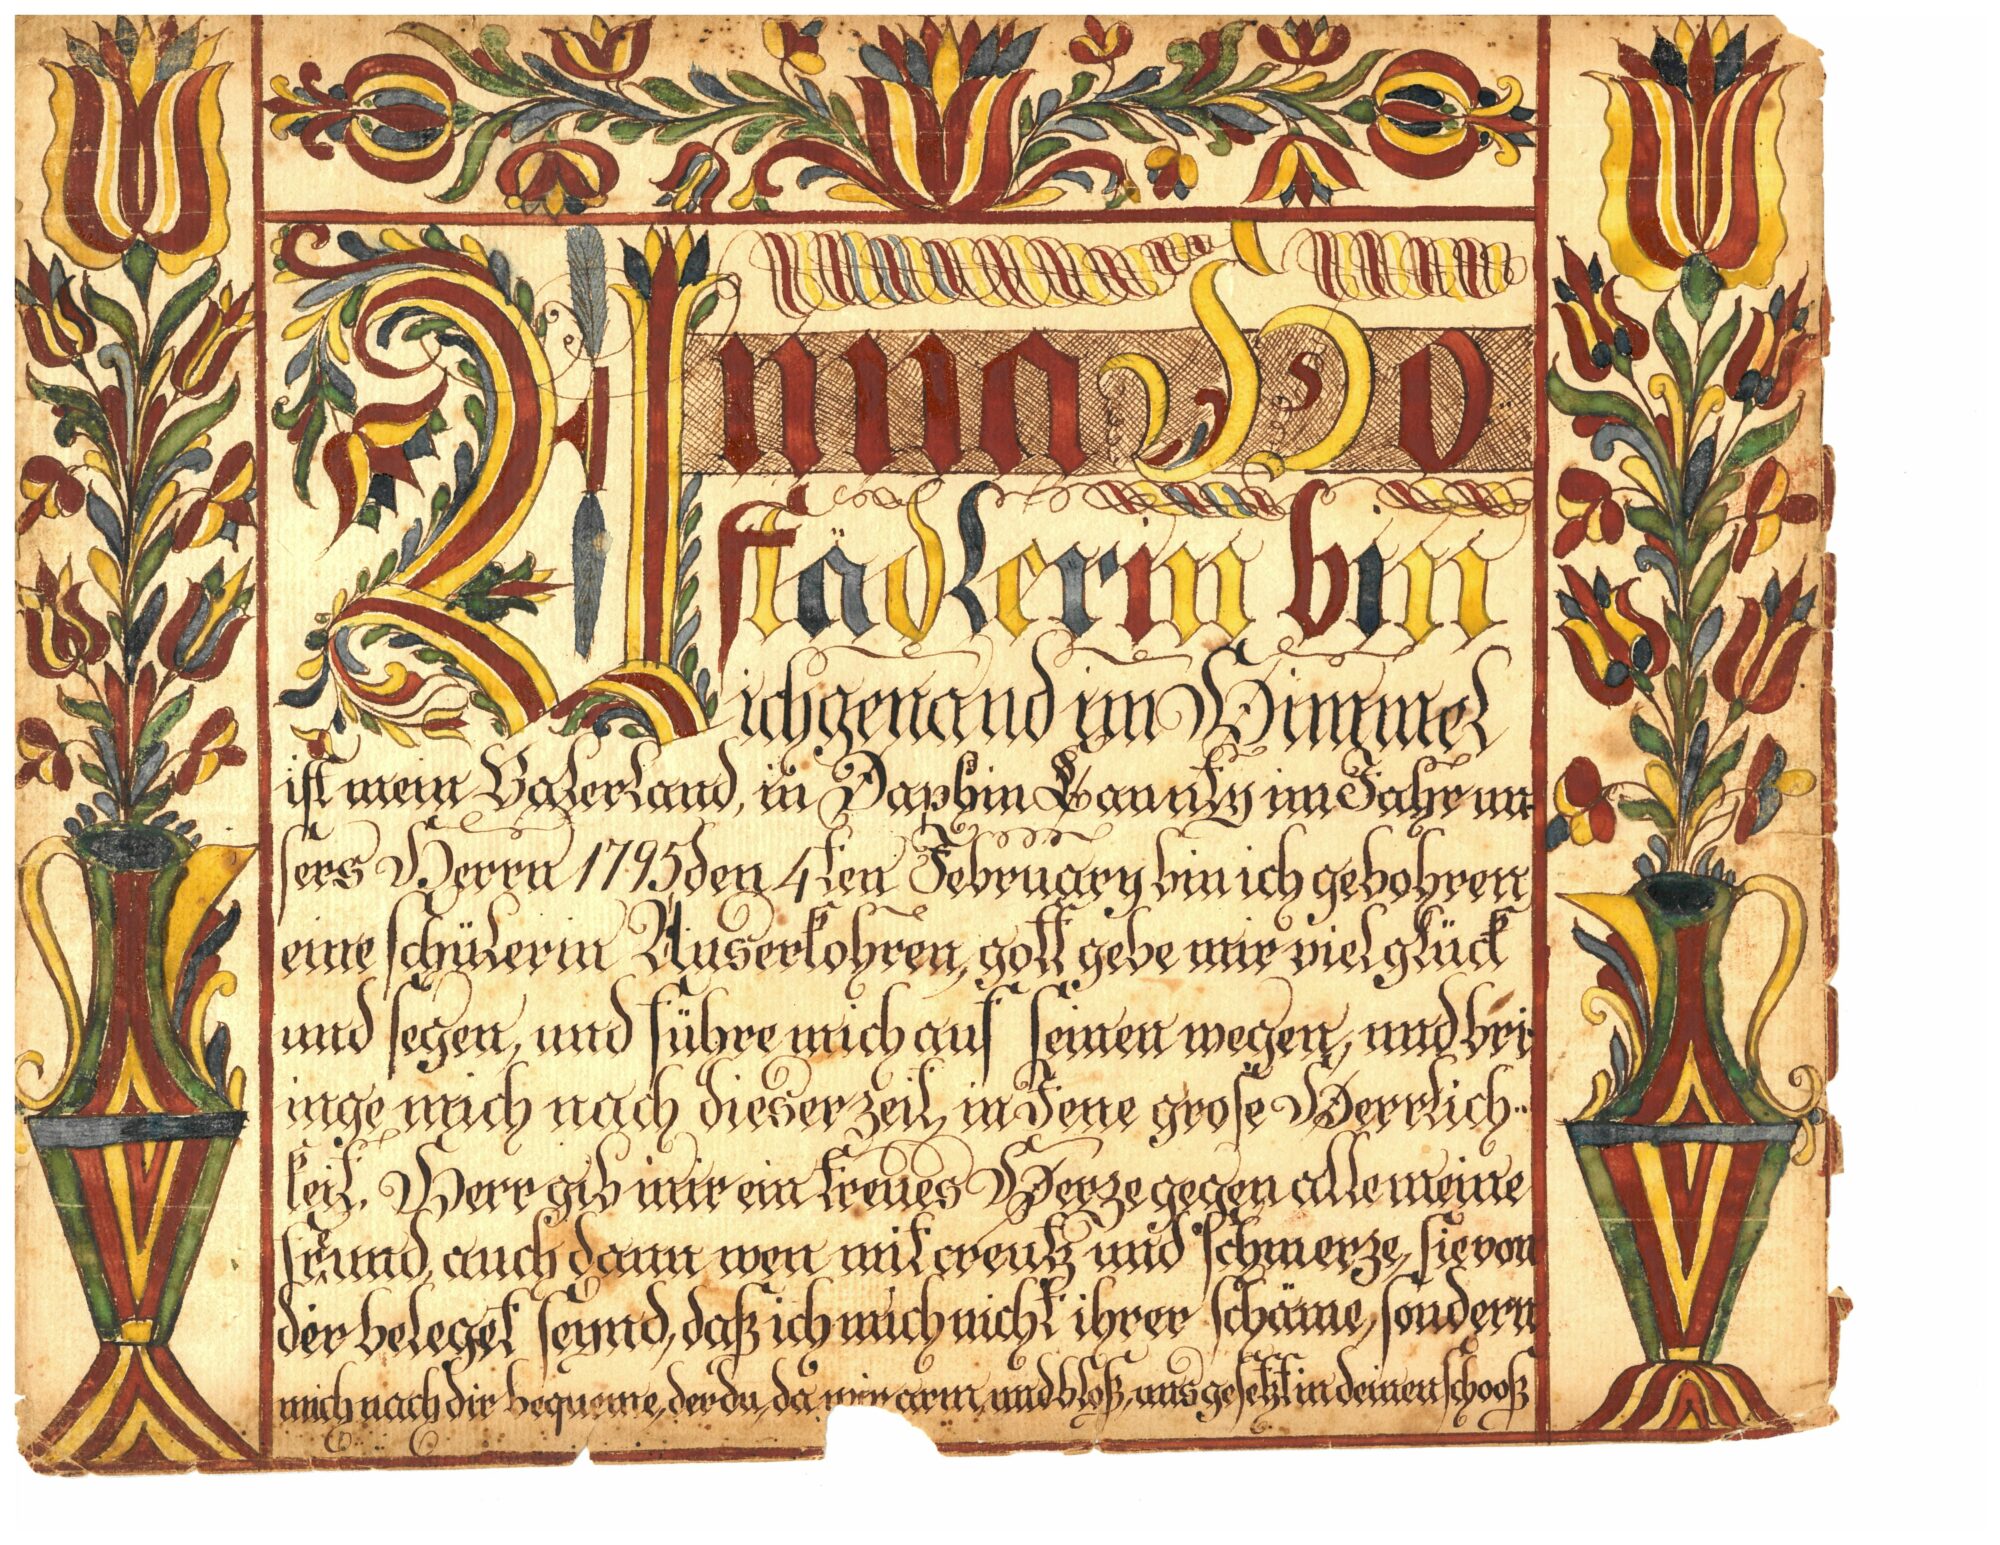 Anna Ho
städlerin bin
ich genand im Himmel
ist mein Vaterland, in Daphin Caunty im Jahr un-
sers Herrn 1795 den 4ten February bin ich gebohren
eine schülerin Auserkohren, gott gebe mir viel glück
und segen, und führe mich auf seinen wegen, und bri-
inge mich nach dieser zeit, in Jene grose Herrlich-
keit. Herr gib mir ein treues Herze gegen alle meine
freund, auch dann wen mit creutz und schmerze, sie von
dir beleget seynd, daß ich mich nicht ihrer schäme, sondern
mich nach dir bequeme, der du, da wir arm, und bloß, uns gesetzt in deinen schooß